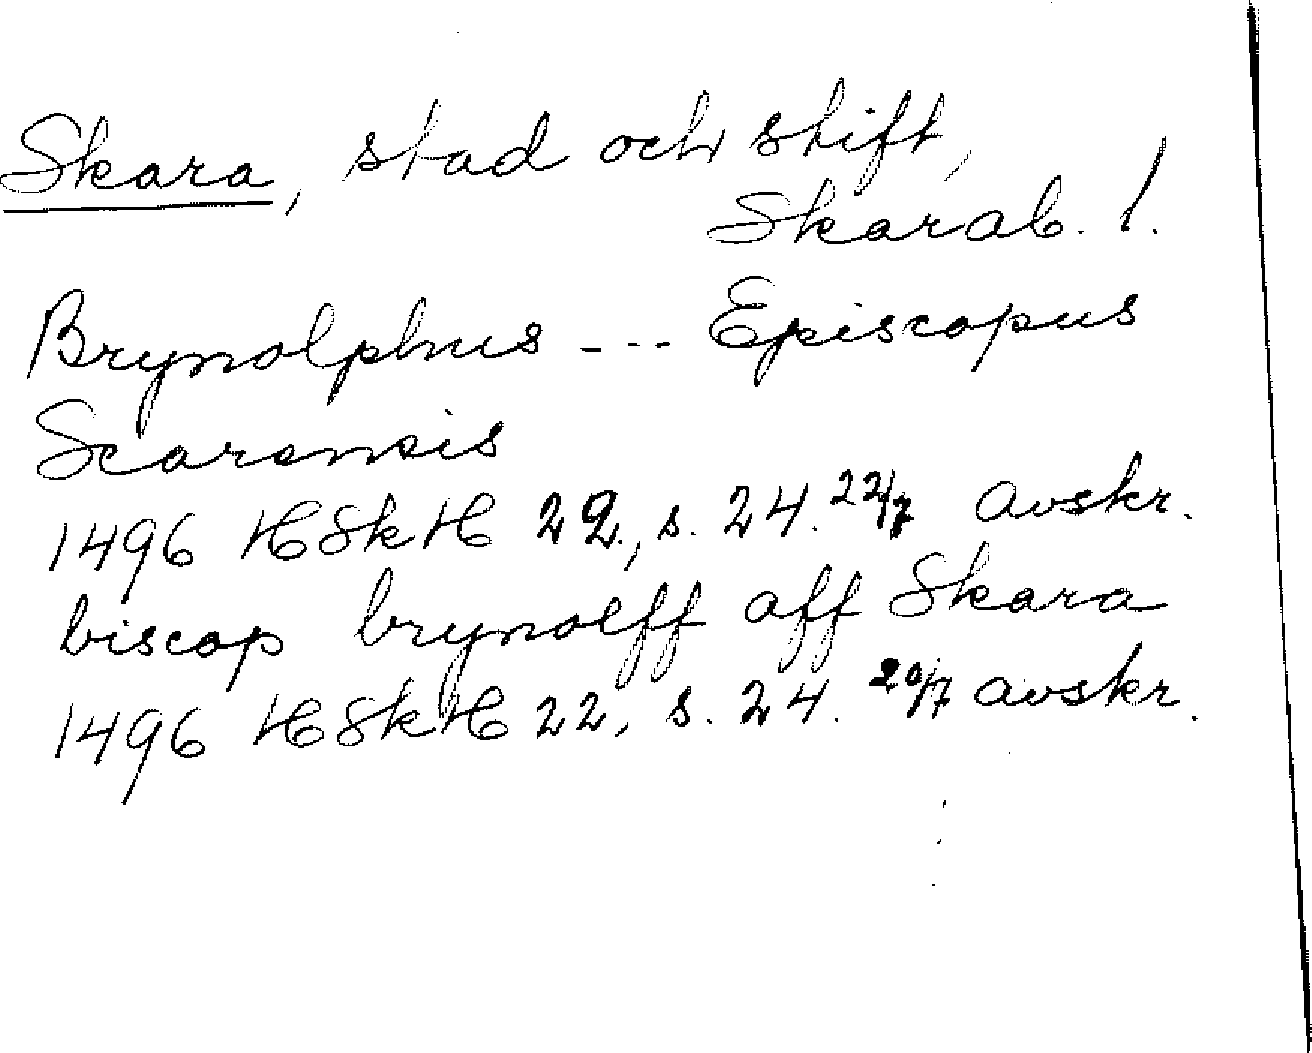 Skara, stad och stift,
Skarab. l.
Brynolphus --- Episcopus
Scarensis
1496 HSkH 22, s. 24. 22/7 avskr.
biscop brynolff aff Skara
1496 HSkH 22, s. 24. 20/7 avskr.